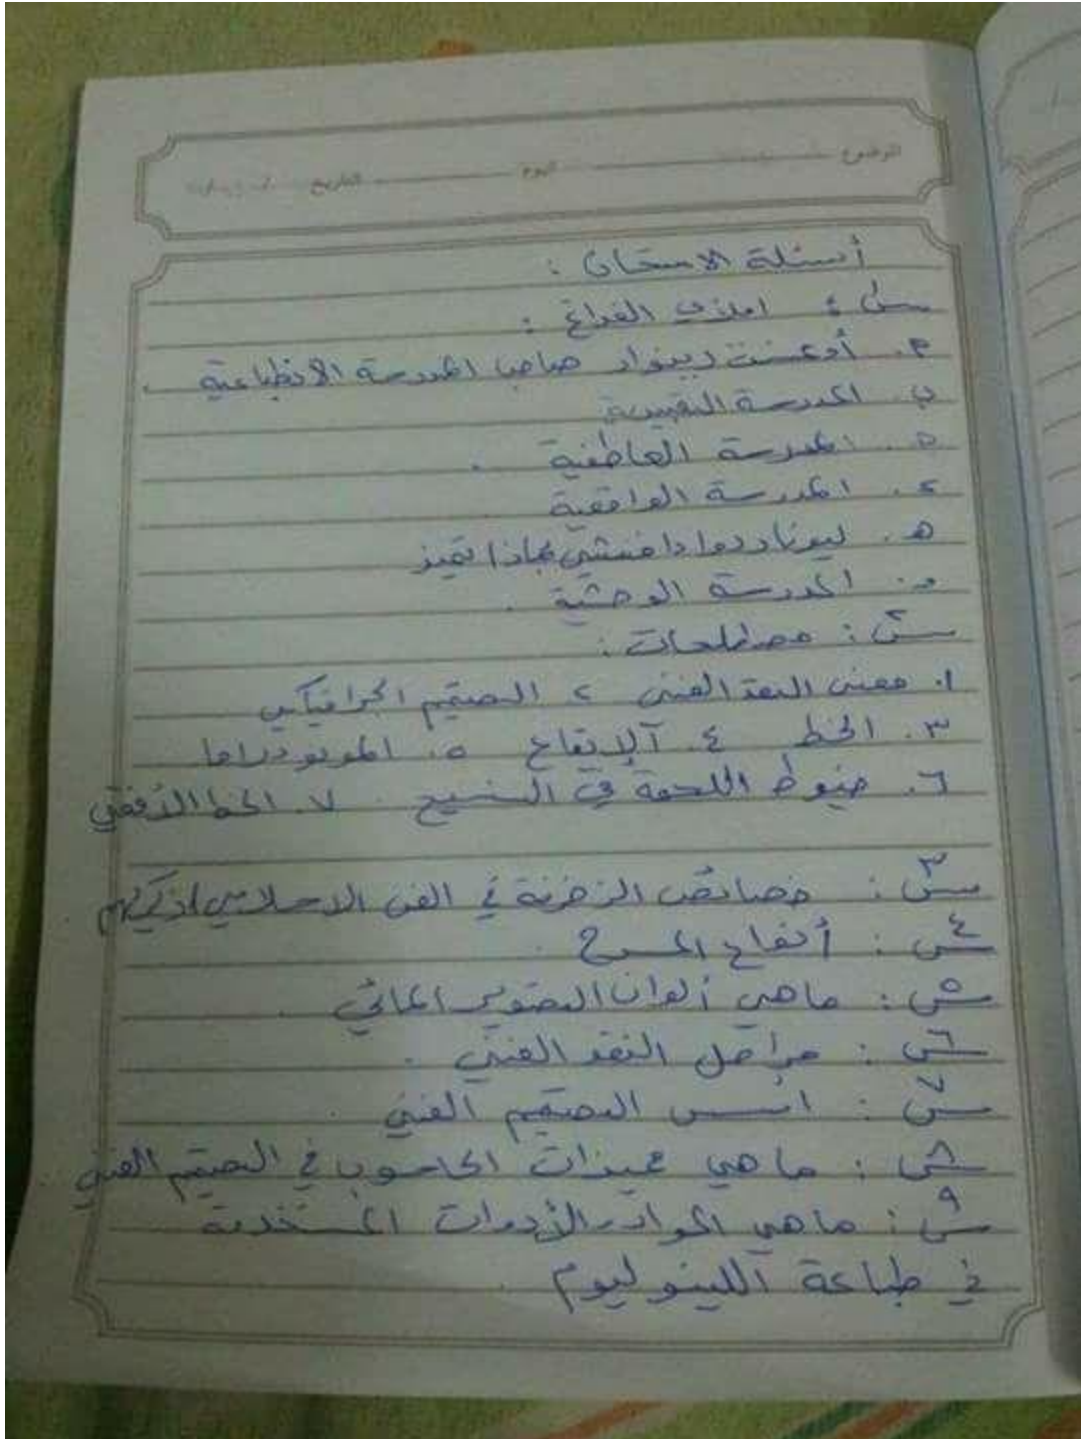 الموضوع اليوم التاريخ
أسئلة الامتحان :
س١ : املئي الفراغ :
أ. أوغست رينوار صاحب المدرسة الانطباعية .
ب. المدرسة التعبيرية
ج. المدرسة العاطفية .
د. المدرسة الواقعية
هـ. ليوناردوا دافنشي بماذا تميز
و. المدرسة الوحشية .
س٢ : مصطلحات :
١. معنى النقد الفني ٢. التصميم الجرافيكي
٣. الخط ٤. الإيقاع ٥. المونودراما
٦. خيوط اللحمة في النسيج ٧. الخط الأفقي
س٣ : خصائص الزخرفة في الفن الاسلامي اذكريهم .
س٤ : أنواع المسرح .
س٥ : ماهي ألوان التصوير المائي .
س٦ : مراحل النقد الفني .
س٧ : اسس التصميم الفني .
س٨ : ما هي مميزات الحاسوب في التصميم الفني .
س٩ : ماهي المواد والأدوات المستخدمة
في طباعة اللينوليوم .